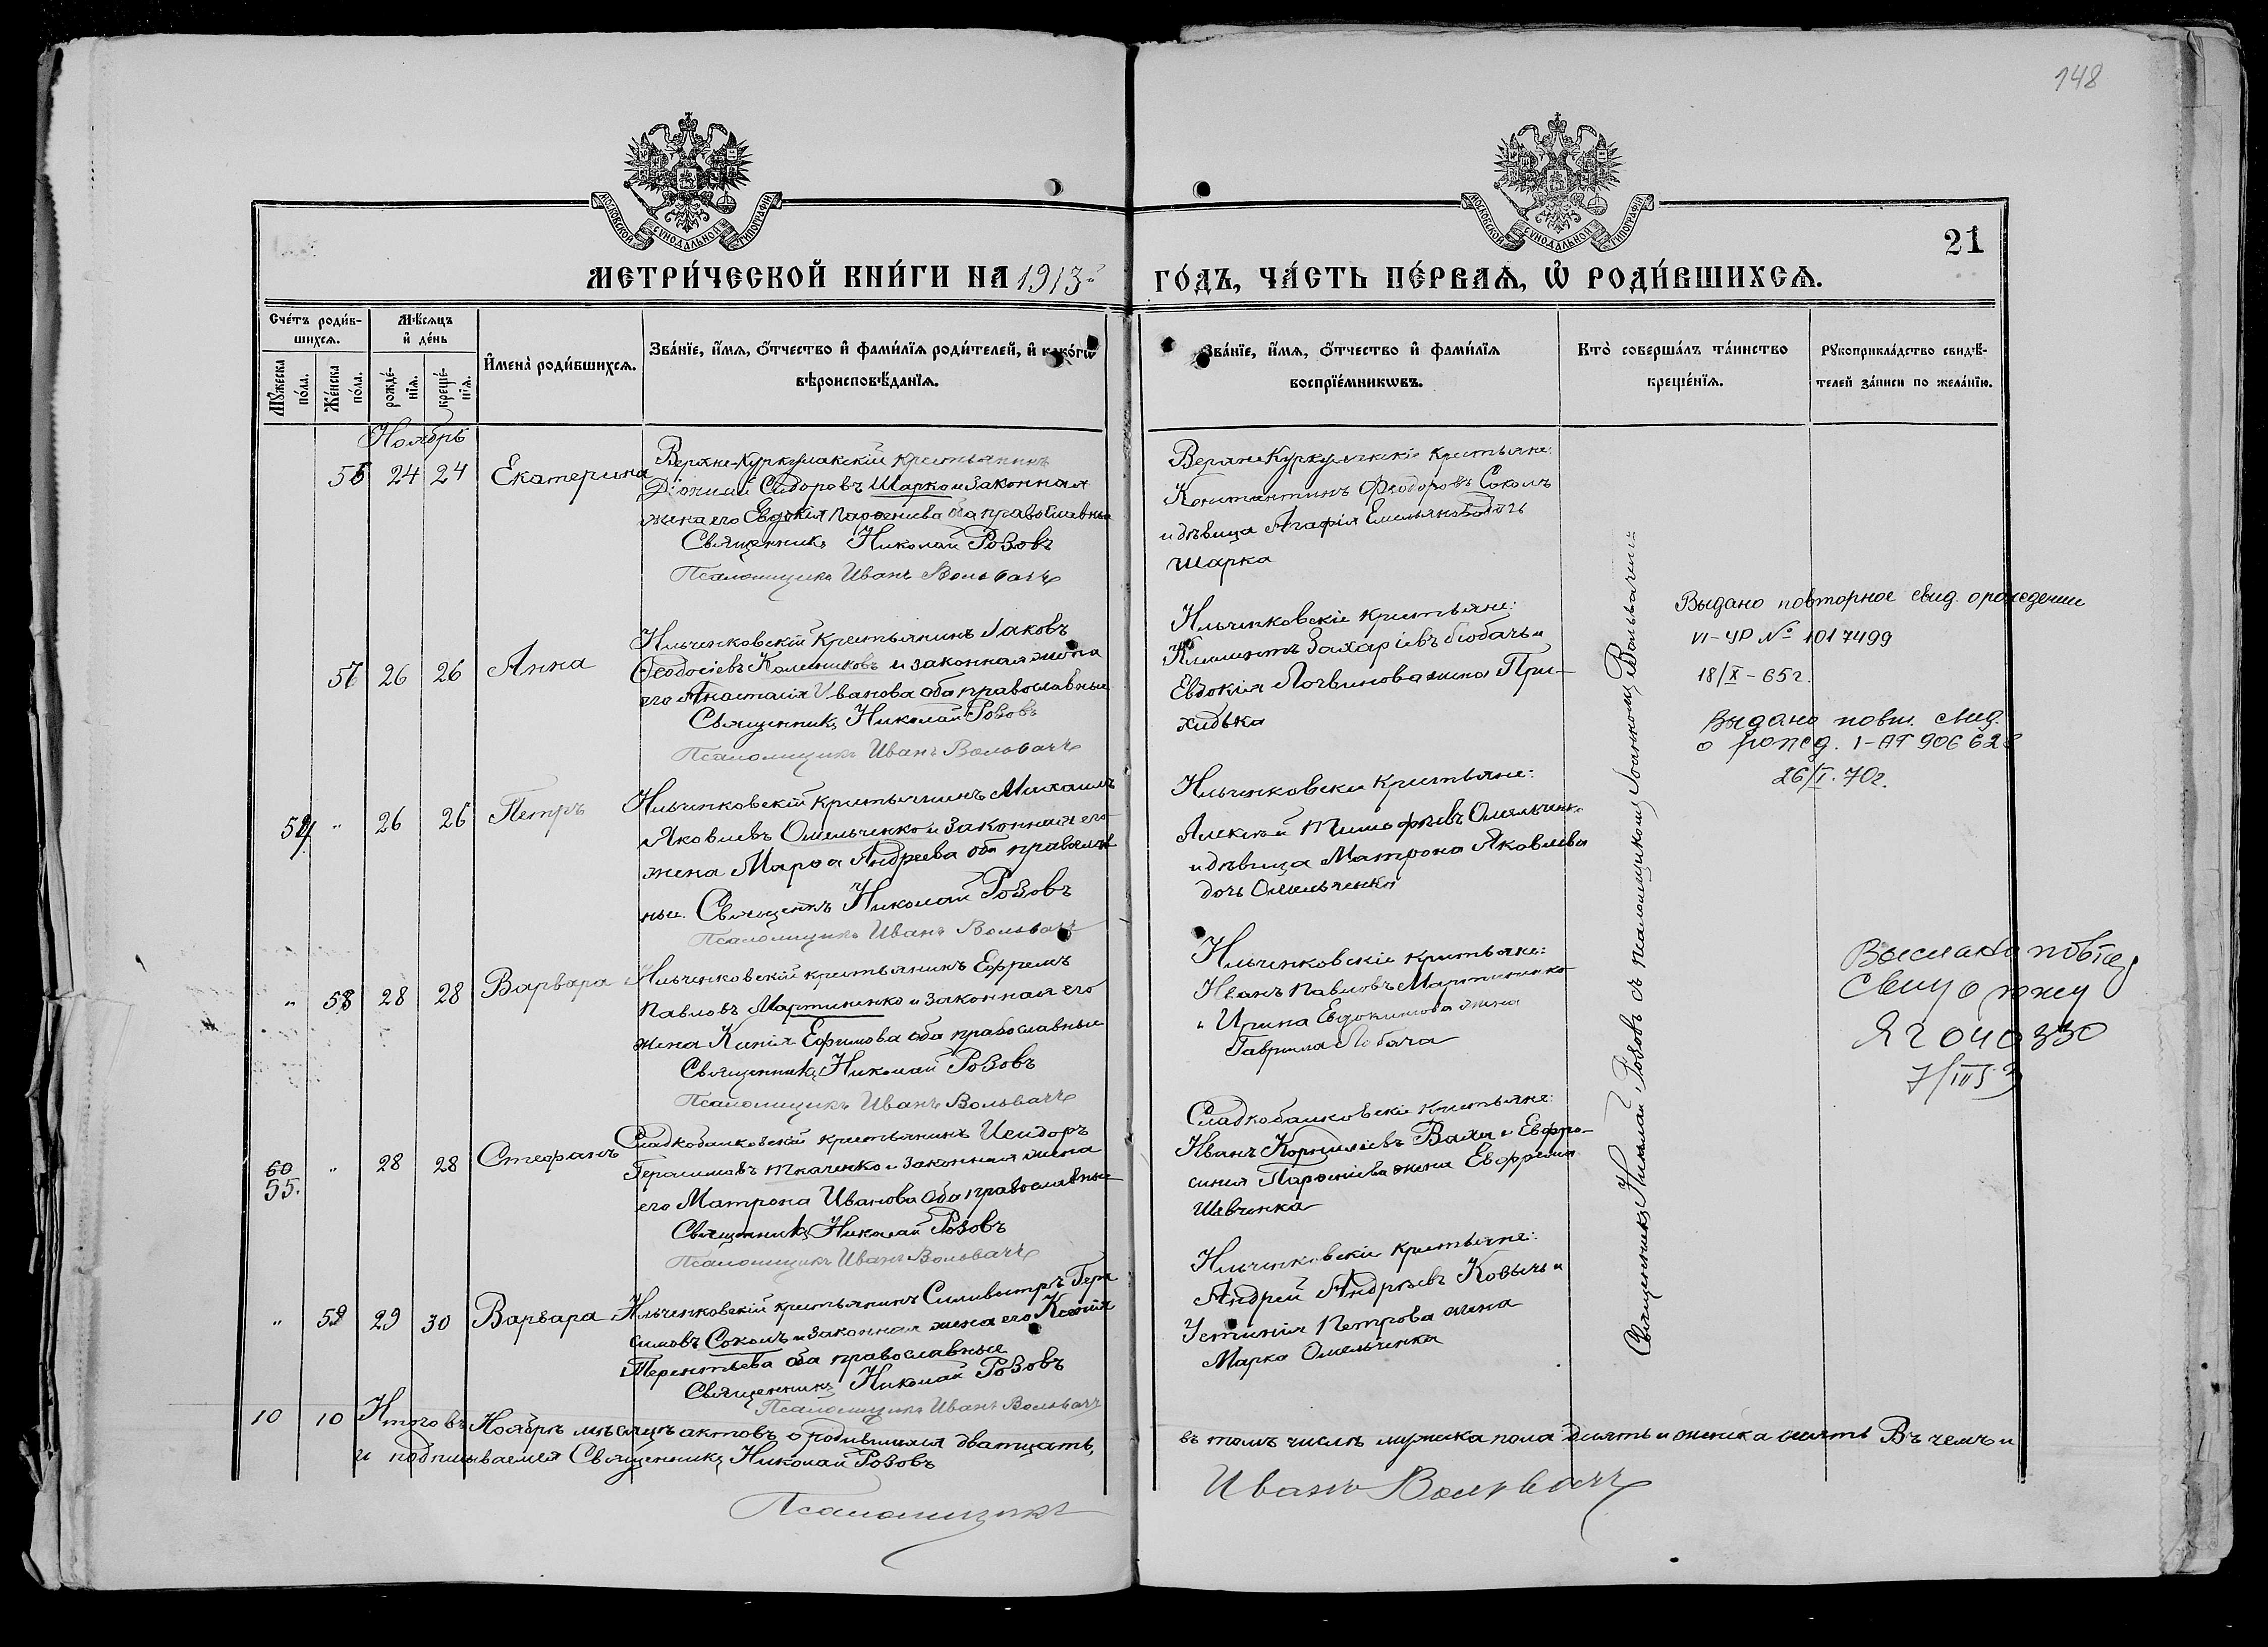 148
МОСКОВСКОЙ СѴНОДАЛЬНОЙ ТИПОГРАФІИ
МОСКОВСКОЙ СѴНОДАЛЬНОЙ ТИПОГРАФІИ
21
МЕТРИ́ЧЕСКОЙ КНИ́ГИ НА 1913й ГО́ДЪ, ЧА́СТЬ ПЕ́РВАѦ, Ѡ҆ РОДИ́ВШИХСѦ.
Сче́тъ роди́в-
шихсѧ.
Мꙋ́жеска по́ла.
Же́нска по́ла.
Мѣ́сѧцъ
и҆ де́нь
рожде́-
нїѧ.
креще́-
нїѧ.
И҆мена̀ роди́вшихсѧ.
Зва́нїе, и҆́мѧ, ѻ҆́тчество и҆ фами́лїѧ роди́телей, и҆ како́гѡ
вѣроисповѣ́данїѧ.
Зва́нїе, и҆́мѧ, ѻ҆́тчество и҆ фами́лїѧ
воспрїе́мникѡвъ.
Кто̀ соверша́лъ та́инство
креще́нїѧ.
Рꙋкоприкла́дство свидѣ́-
телей за́писи по жела́нїю.
Ноябрь
56 24 24 Екатерина
Верхне-Куркулакскій крестьянинъ
Діонисій Сидоровъ Шарко и законная
жена его Евдокія Парѳеніева оба православные
Священникъ Николай Розовъ
Псаломщикъ Иванъ Вольвачъ
Верхне Куркулакскіе крестьяне:
Константинъ Феодоровъ Соколъ
и дѣвица Агафія Емельянова дочь
Шарка
57 26 26 Анна
Ильченковскій крестьянинъ Іаковъ
Ѳеодосіевъ Колесниковъ и законная жена
его Анастасія Иванова оба православные
Священникъ Николай Розовъ
Псаломщикъ Иванъ Вольвачъ
Ильченковскіе крестьяне:
Климентъ Захаріевъ Лобачъ и
Евдокія Логвинова жена При-
ходька
Выдано повторное свид. о рождении
VI-УР № 1017499
18/X-65г.
Выдано повт. свид.
о рожд. 1-АП 906628
26/I. 70г.
54 " 26 26 Петръ
Ильченковскій крестьянинъ Михаилъ
Яковлевъ Омельченко и законная его
жена Марѳа Андреева оба православ
ные. Священникъ Николай Розовъ
Псаломщикъ Иванъ Вольвачъ
Ильченковскіе крестьяне:
Алексѣй Тимофѣевъ Омельченко
и дѣвица Матрона Яковлева
дочь Омельченко
" 58 28 28 Варвара
Ильченковскій крестьянинъ Ефремъ
Павловъ Мартиненко и законная его
жена Ксенія Ефимова оба православные
Священникъ Николай Розовъ
Псаломщикъ Иванъ Вольвачъ
Ильченковскіе крестьяне:
Иванъ Павловъ Мартиненко
и Ирина Евдокимова жена
Гавріила Лобача
Выслано повтор
040330
60
55. " 28 28 Стефанъ
Сладкобалковскій крестьянинъ Исидоръ
Герасимовъ Ткаченко и законная жена
его Матрона Иванова оба православные
Священникъ Николай Розовъ
Псаломщикъ Иванъ Вольвачъ
Сладкобалковскіе крестьяне:
Иванъ Корниліевъ Ваха и Евфро-
синія Парѳеніева жена Евфрема
Шевченка
" 59 29 30 Варвара
Ильченковскій крестьянинъ Силивестръ Гера
симовъ Соколъ и законная жена его Ксенія
Терентьева оба православные
Священникъ Николай Розовъ
Псаломщикъ Иванъ Вольвачъ
Ильченковскіе крестьяне:
Андрей Андреевъ Ковычъ и
Устинія Петрова жена
Марка Омельченка
Священникъ Николай Розовъ съ псаломщикомъ Іоанномъ Вольвачемъ
10 10 Итого въ Ноябрѣ мѣсяцѣ актовъ о родившихся двадцать, въ томъ числѣ мужска пола десять и женска десять Въ чемъ и
и подписываемся Священникъ Николай Розовъ
Псаломщикъ Иванъ Вольвачъ